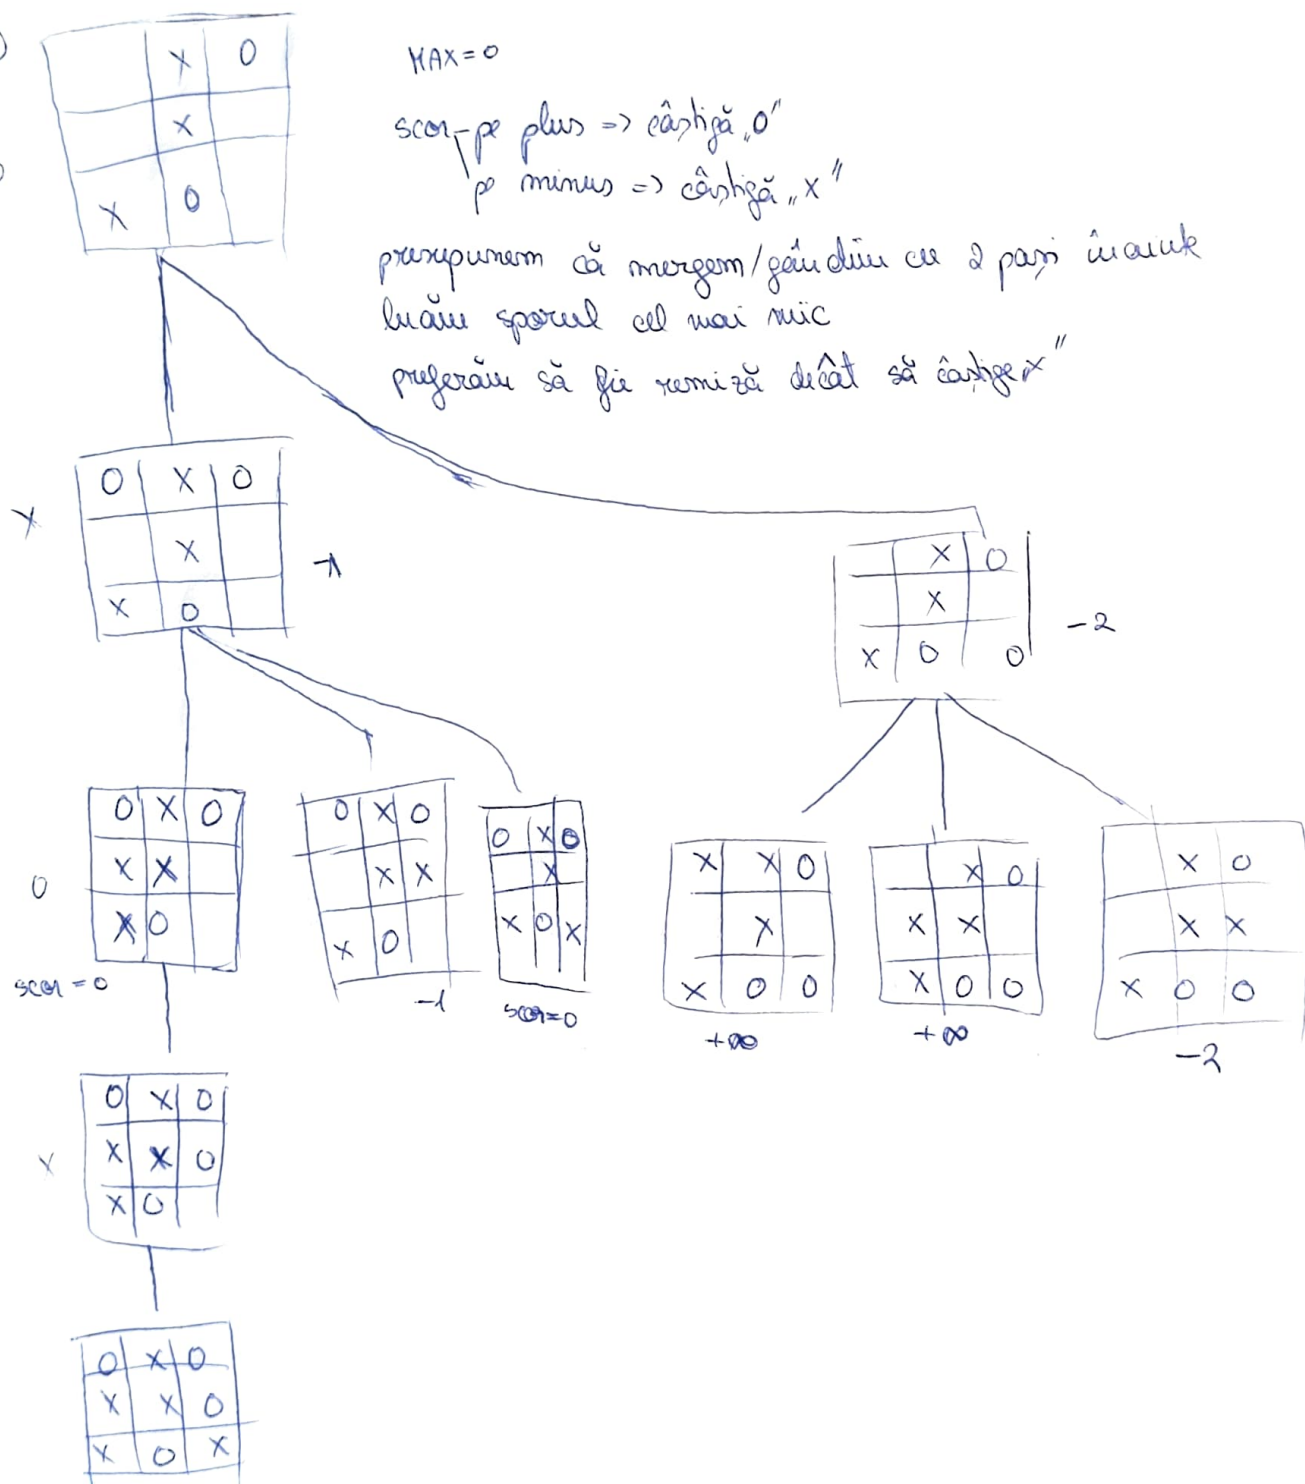 X 0
X
X 0
MAX = 0
scor - pe plus => câștigă „0"
pe minus => câștigă „X"
presupunem că mergem/gândim cu 2 pași înainte
luăm sporul cel mai mic
preferăm să fie remiză decât să câștige „X"
X
0 X 0
X
X 0
-1
X 0
X
X 0 0
-2
0
0 X 0
X X
X 0
scor = 0
0 X 0
X X
X 0
-1
0 X 0
X
X 0 X
scor=0
X X 0
X
X 0 0
+∞
X 0
X X
X 0 0
+∞
X 0
X X
X 0 0
-2
X
0 X 0
X X 0
X 0
0 X 0
X X 0
X 0 X